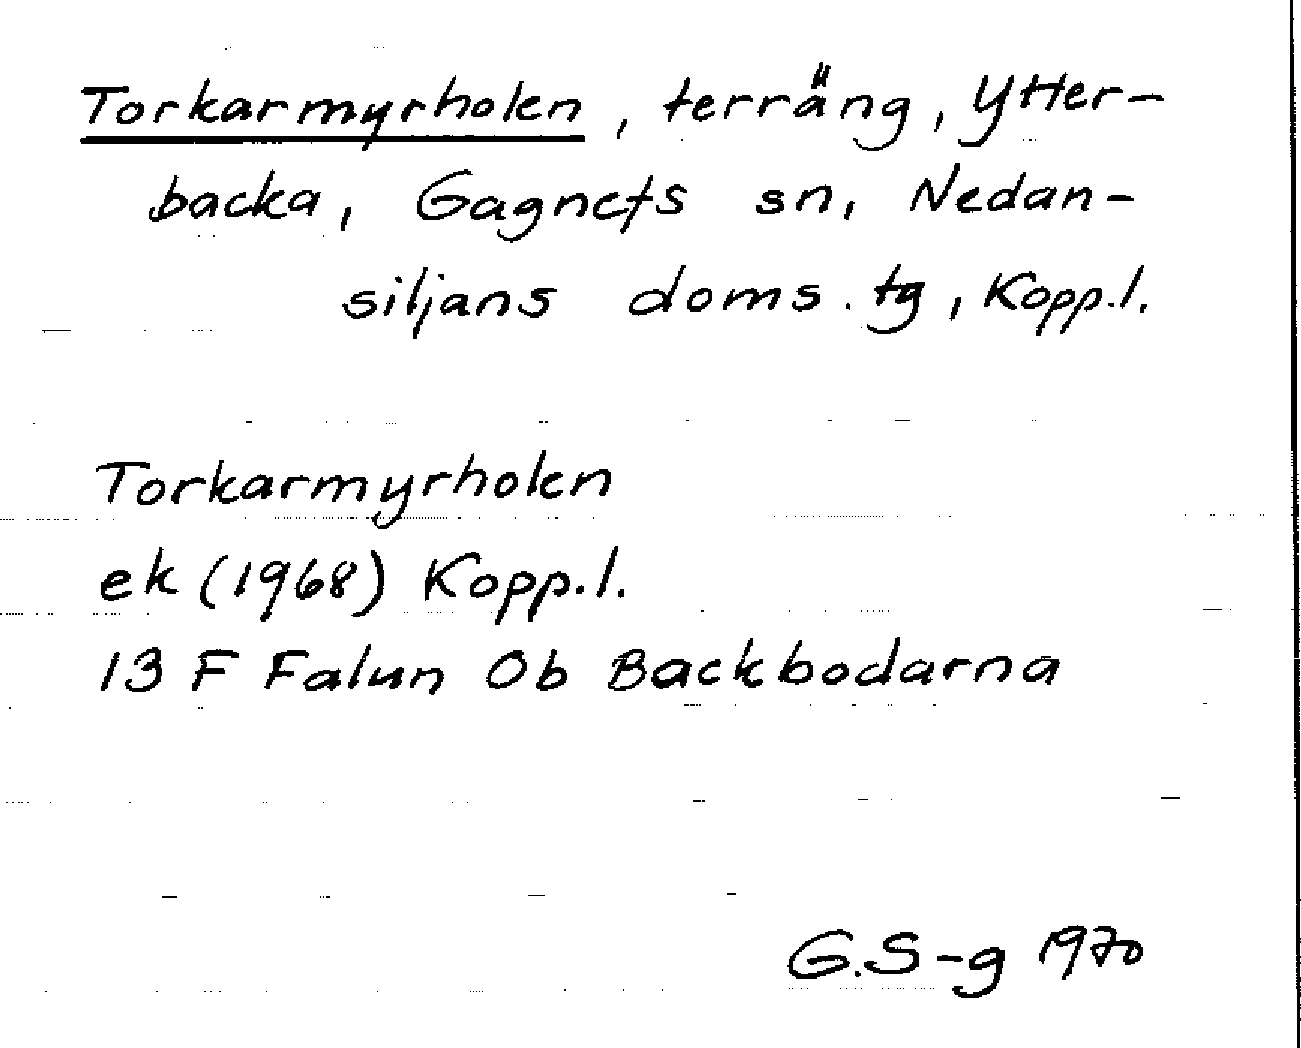 Torkarmyrholen, terräng, Ytter-
backa, Gagnefs sn, Nedan-
siljans doms. tg, Kopp.l.
Torkarmyrholen
ek (1968) Kopp.l.
13 F Falun Ob Backbodarna
G.S-g 1970